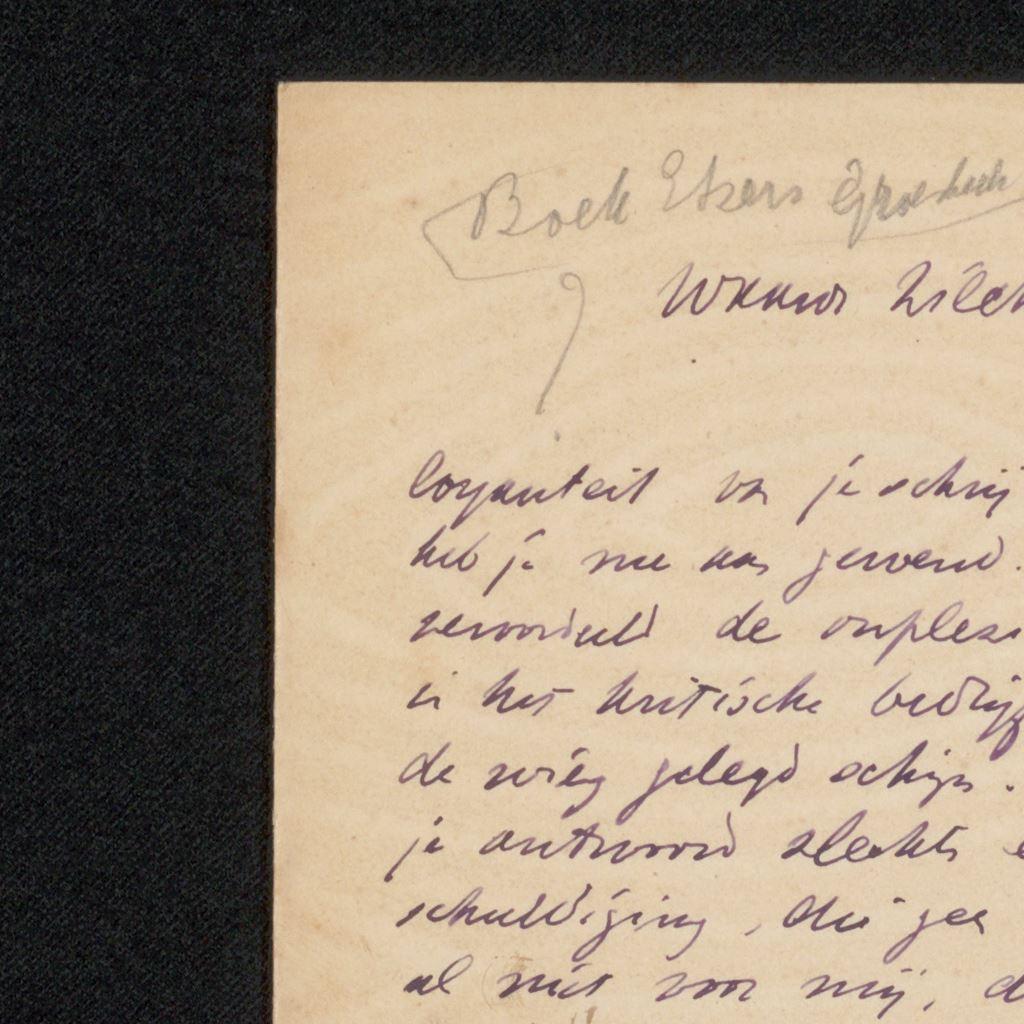 Boek Etsers
Waarde Zilck
loyauteit van je schrij
heb je me aan gewend.
veroordeeld de onplez
in het kritische bedrijf
de wieg gelegd schijn.
je antwoord slechts e
schuldiging, die geen
al niet voor mij, d